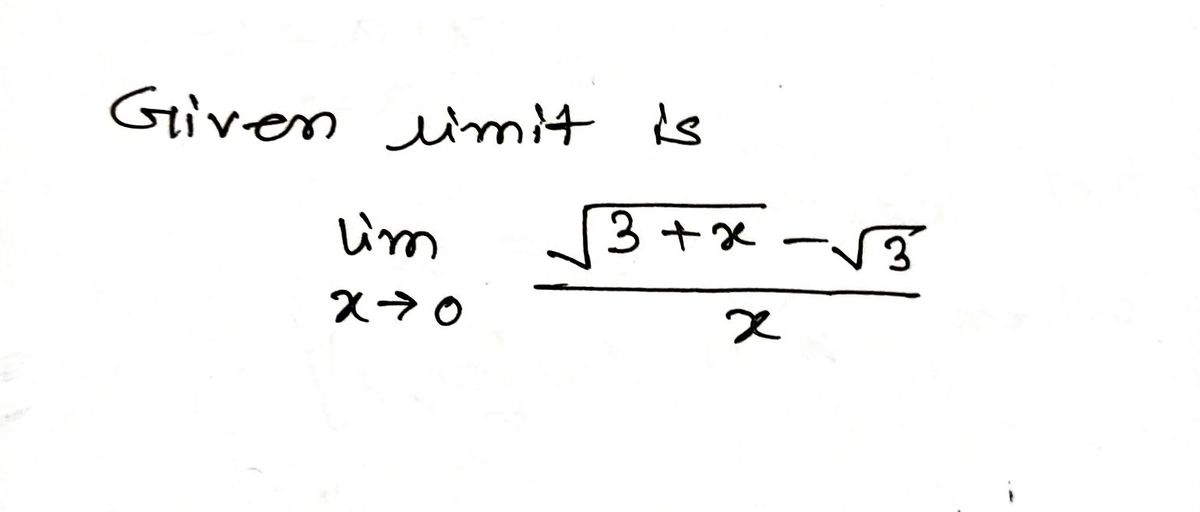 Given limit is
lim x→0 (√(3+x) - √3) / x